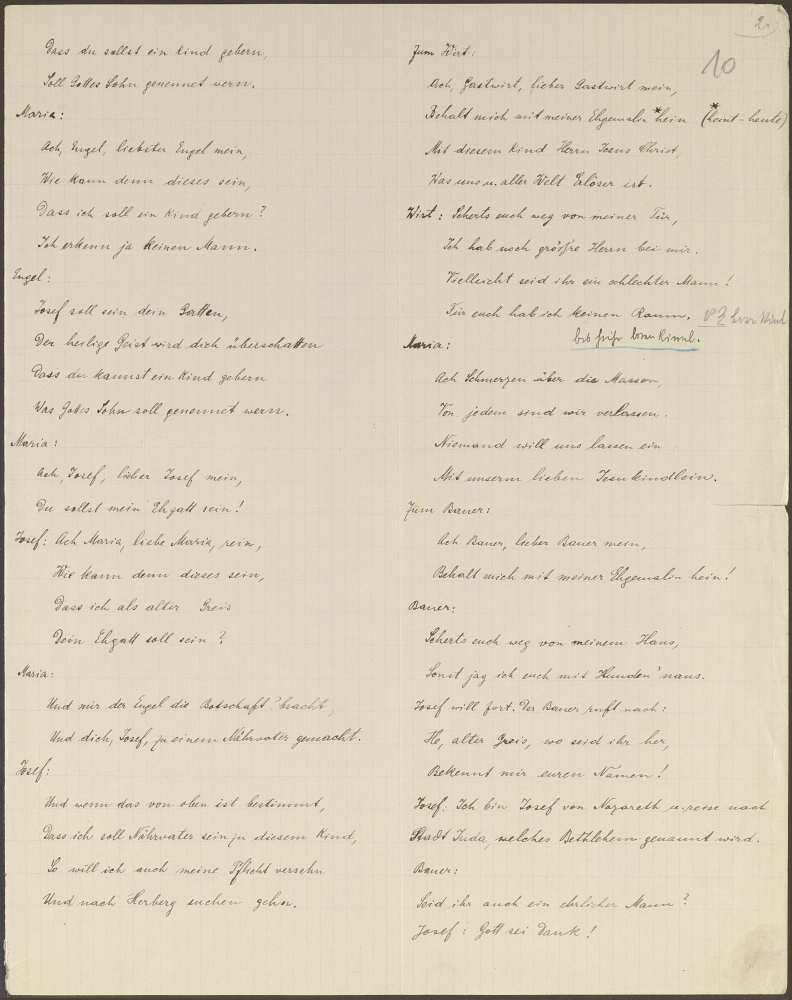 2.
10
Dass du sollst ein Kind gebern,
Soll Gottes Sohn genennet wern.
Maria:
Ach, Engel, liebster Engel mein,
Wie kann denn dieses sein,
Dass ich soll ein Kind gebern?
Ich erkenn ja keinen Mann.
Engel:
Josef soll sein dein Gatten,
Der heilige Geist wird dich überschatten
Dass du kannst ein Kind gebern
Was Gottes Sohn soll genennet wern.
Maria:
Ach, Josef, lieber Josef mein,
Du sollst mein Ehgatt sein!
Josef: Ach Maria, liebe Maria, rein,
Wie kann denn dieses sein,
Dass ich als alter Greis
Dein Ehgatt soll sein?
Maria:
Und mir der Engel die Botschaft 'bracht,
Und dich, Josef, zu einem Nährvater gemacht.
Josef:
Und wenn das von oben ist bestimmt,
Dass ich soll Nährvater sein zu diesem Kind,
So will ich auch meine Pflicht versehn
Und nach Herberg suchen gehn.
Zum Wirt:
Ach, Gastwirt, lieber Gastwirt mein,
Behalt mich mit meiner Ehgemalin *hein (*heint - heute)
Mit diesem Kind Herrn Jesus Christ,
Was uns u. aller Welt Erlöser ist.
Wirt: Scherts euch weg von meiner Tür,
Ich hab noch größre Herrn bei mir.
Vielleicht seid ihr ein schlechter Mann!
Für euch hab ich keinen Raum.
Maria:
Ach Schmerzen über die Massen,
Von jedem sind wir verlassen.
Niemand will uns lassen ein
Mit unserm lieben Jesukindlein.
Zum Bauer:
Ach Bauer, lieber Bauer mein,
Behalt mich mit meiner Ehgemalin hein!
Bauer:
Scherts euch weg von meinem Haus,
Sonst jag ich euch mit Hunden 'naus.
Josef will fort. Der Bauer ruft nach:
He, alter Greis, wo seid ihr her,
Bekennt mir euren Namen!
Josef: Ich bin Josef von Nazareth u. reise nach
Stadt Juda, welches Bethlehem genannt wird.
Bauer:
Seid ihr auch ein ehrlicher Mann?
Josef: Gott sei Dank!